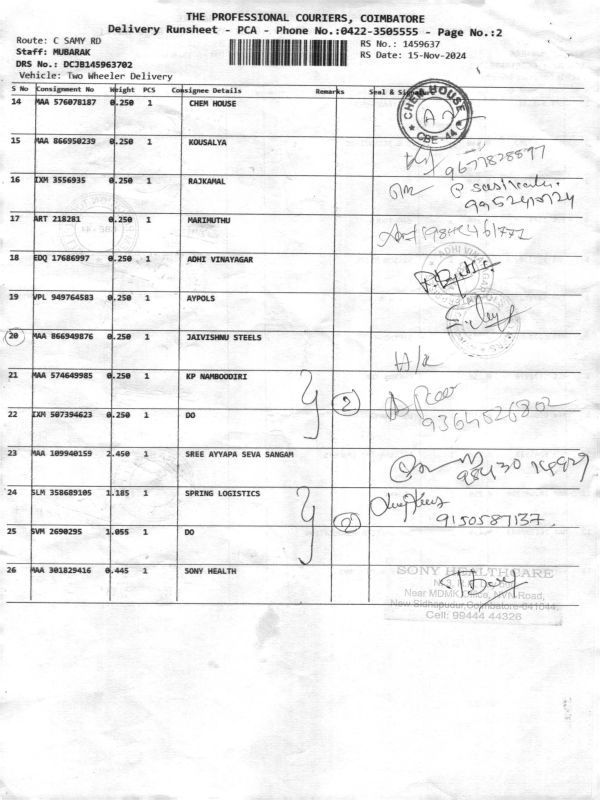 THE PROFESSIONAL COURIERS, COIMBATORE
Delivery Runsheet - PCA - Phone No.:0422-3505555 - Page No.:2
Route: C SAMY RD
RS No.: 1459637
Staff: MUBARAK
RS Date: 15-Nov-2024
DRS No.: DCJB145963702
Vehicle: Two Wheeler Delivery
S No Consignment No Weight PCS Consignee Details Remarks Seal & Signature
14 MAA 576078187 0.250 1 CHEM HOUSE
CHEM HOUSE
CBE-44
15 MAA 866950239 0.250 1 KOUSALYA
16 IXM 3556935 0.250 1 RAJKAMAL
17 ART 218281 0.250 1 MARIMUTHU
18 EDQ 17686997 0.250 1 ADHI VINAYAGAR
ADHI VINAYAGAR
19 VPL 949764583 0.250 1 AYPOLS
20 MAA 866949876 0.250 1 JAIVISHNU STEELS
21 MAA 574649985 0.250 1 KP NAMBOODIRI
2
9364526802
22 IXM 507394623 0.250 1 DO
23 MAA 109940159 2.450 1 SREE AYYAPA SEVA SANGAM
24 SLM 358689105 1.185 1 SPRING LOGISTICS
9150587137
25 SVM 2690295 1.055 1 DO
26 MAA 301829416 0.445 1 SONY HEALTH
SONY HEALTHCARE
Near MDMK Office, NVN Road,
New Sidhapudur, Coimbatore-641044,
Cell: 99444 44326